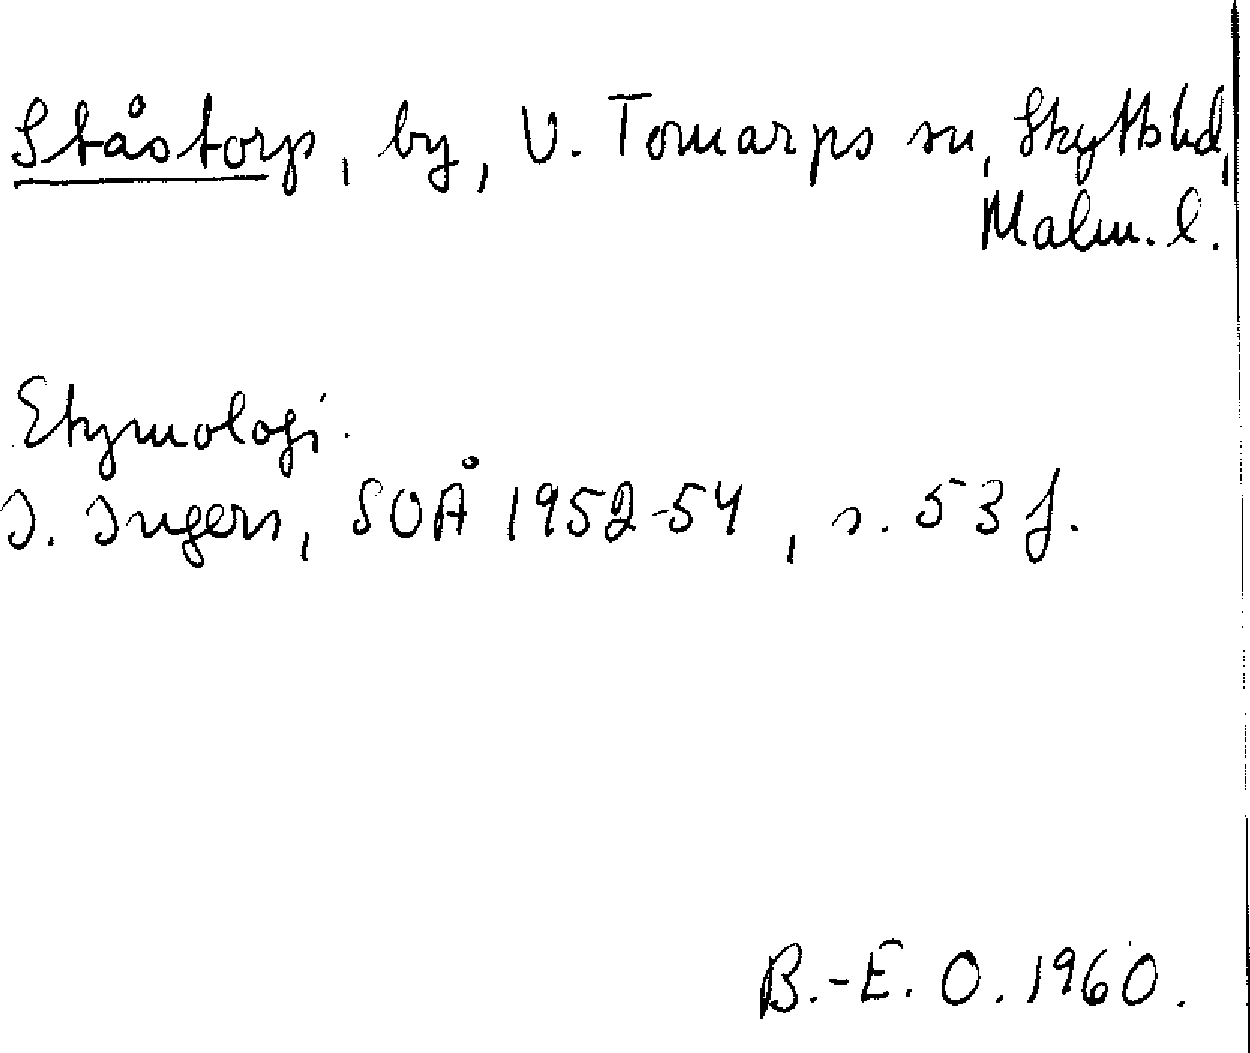 Ståstorp, by, V. Tomarps sn, Skytts hd,
Malm. l.
Etymologi.
I. Ingers, SOÅ 1952-54, s. 53 f.
B.-E. O. 1960.